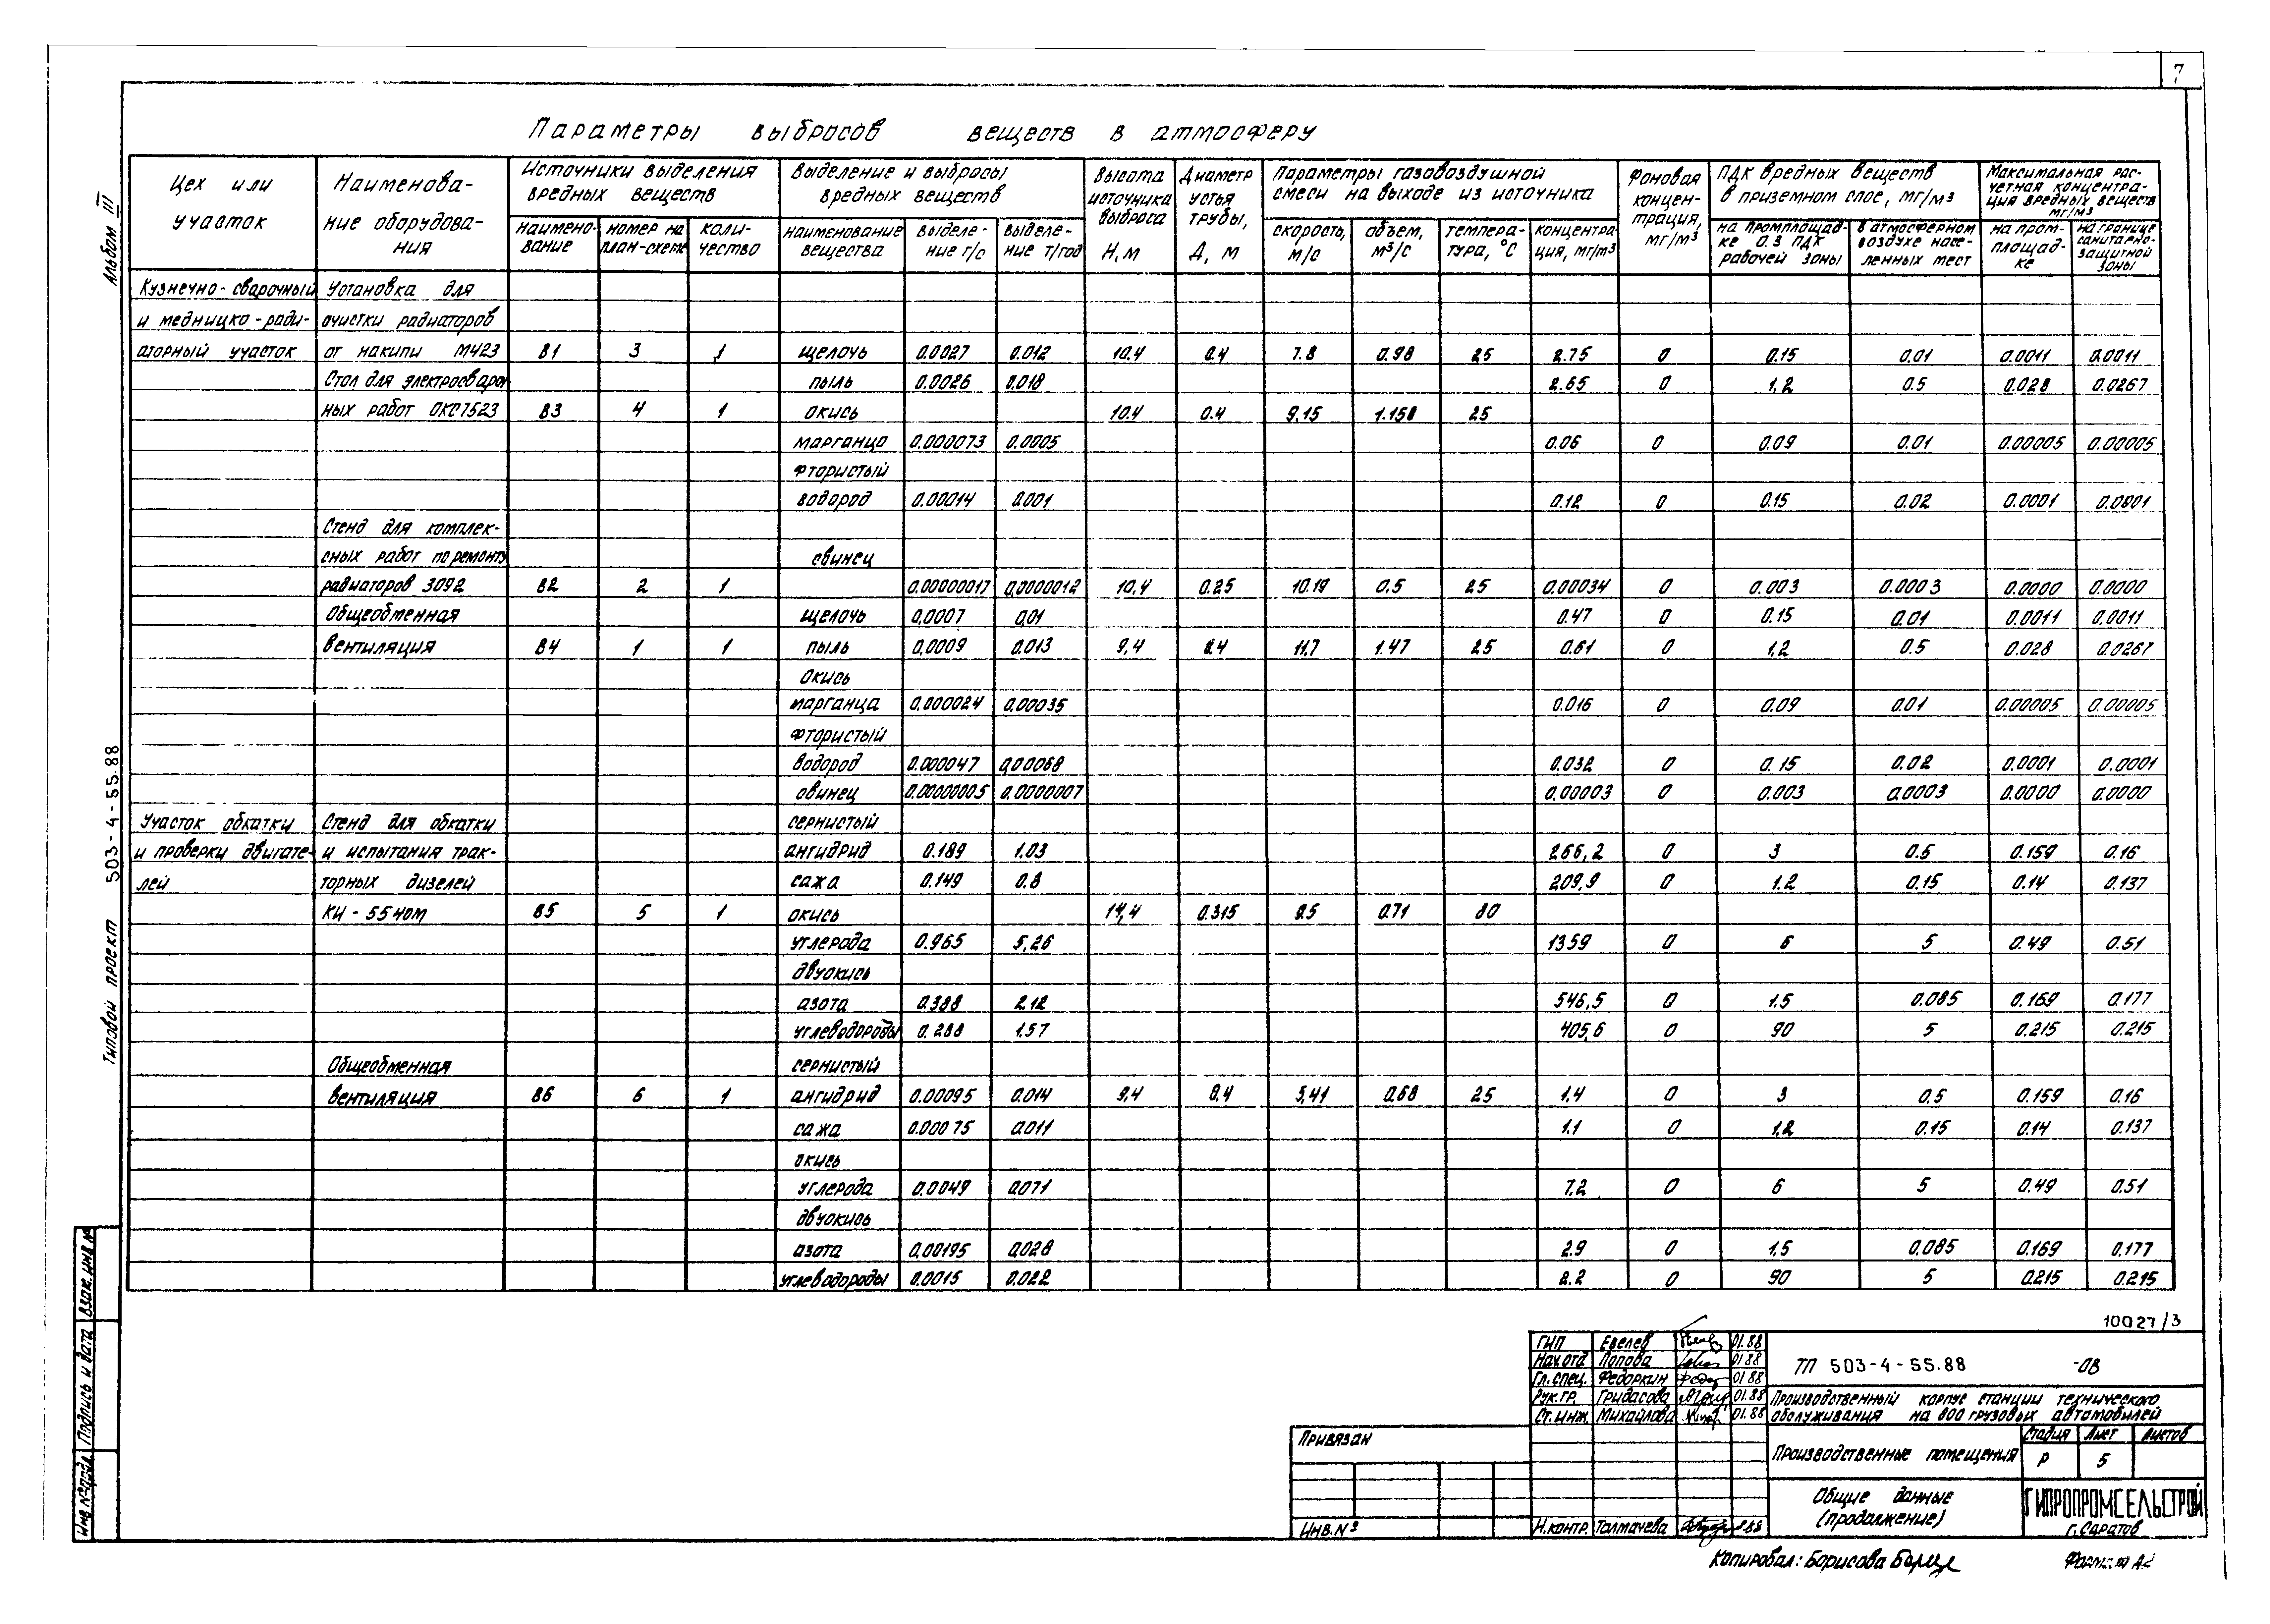 7
Параметры выбросов веществ в атмосферу
Цех или участок
Наименование оборудова-
ния
Источники выделения
вредных веществ
Выделение и выбросы
вредных веществ
Высота
источника
выброса
Н, м
Диаметр
устья
трубы,
Д, м
Параметры газовоздушной
смеси на выходе из источника
Фоновая
концен-
трация,
мг/м³
ПДК вредных веществ
в приземном слое, мг/м³
Максимальная рас-
четная концентра-
ция вредных веществ
мг/м³
наимено-
вание
номер на
план-схеме
коли-
чество
наименование
вещества
выделе-
ние г/с
выделе-
ние т/год
скорость,
м/с
объем,
м³/с
темпера-
тура, °С
концентра-
ция, мг/м³
на промплощад-
ке 0.3 ПДК
рабочей зоны
в атмосферном
воздухе насе-
ленных мест
на пром-
площад-
ке
на границе
санитарно-
защитной
зоны
Кузнечно-сварочный Установка для
и медницко-ради- очистки радиаторов
аторный участок от накипи М423 В1 3 1 щелочь 0.0027 0.012 10.4 0.4 7.8 0.98 25 2.75 0 0.15 0.01 0.0011 0.0011
Стол для электросвароч пыль 0.0026 0.018 2.65 0 1.2 0.5 0.028 0.0267
ных работ ОКС7523 В3 4 1 окись 10.4 0.4 9,15 1.150 25
марганцо 0.000073 0.0005 0.06 0 0.09 0.01 0.00005 0.00005
фтористый
водород 0.00014 0.001 0.12 0 0.15 0.02 0.0001 0.0001
Стенд для комплек-
сных работ по ремонту свинец
радиаторов 3092 В2 2 1 0.00000017 0,0000012 10,4 0.25 10.19 0.5 25 0.00034 0 0.003 0.0003 0.0000 0.0000
Общеобменная щелочь 0,0007 0,01 0.47 0 0.15 0.01 0.0011 0.0011
вентиляция В4 1 1 пыль 0,0009 0.013 9,4 0.4 11,7 1.47 25 0.61 0 1,2 0.5 0.028 0.0267
окись
марганца 0,000024 0.00035 0.016 0 0.09 0.01 0.00005 0.00005
фтористый
водород 0.000047 0,00068 0.032 0 0.15 0.02 0.0001 0.0001
свинец 0,00000005 0.0000007 0,00003 0 0.003 0.0003 0.0000 0.0000
Участок обкатки Стенд для обкатки сернистый
и проверки двигате- и испытания трак- ангидрид 0.189 1.03 266,2 0 3 0.5 0.159 0.16
лей торных дизелей сажа 0.149 0.8 209,9 0 1.2 0.15 0.14 0.137
КИ-5540М В5 5 1 окись 14,4 0.315 9.5 0.71 80
углерода 0.965 5,26 1359 0 6 5 0.49 0.51
двуокись
азота 0.388 2.12 546,5 0 1.5 0.085 0.169 0.177
углеводороды 0.288 1.57 405,6 0 90 5 0.215 0.215
Общеобменная сернистый
вентиляция В6 6 1 ангидрид 0.00095 0.014 9,4 0.4 5,41 0,68 25 1.4 0 3 0,5 0.159 0.16
сажа 0.00075 0.011 1.1 0 1,2 0.15 0.14 0.137
окись
углерода 0.0049 0.071 7,2 0 6 5 0.49 0.51
двуокись
азота 0,00195 0,028 2.9 0 1.5 0,085 0.169 0.177
углеводороды 0.0015 0.022 2.2 0 90 5 0.215 0.215
Альбом III
Типовой проект 503-4-55.88
Взам. инв №
Подпись и дата
Инв № подл.
10027/3
ГИП Евелев 01.88
Нач.отд Попова 01 88
Гл.спец. Федоркин 01 88
Рук.гр. Гридасова 01.88
Ст.инж. Михайлова 01.88
Н.контр. Толмачева
ТП 503-4-55.88 -ОВ
Производственный корпус станции технического
обслуживания на 800 грузовых автомобилей
Производственные помещения
Стадия Лист Листов
Р 5
Общие данные
(продолжение)
ГИПРОПРОМСЕЛЬСТРОЙ
г. Саратов
Привязан
Инв. №
Копировал: Борисова
Формат А2